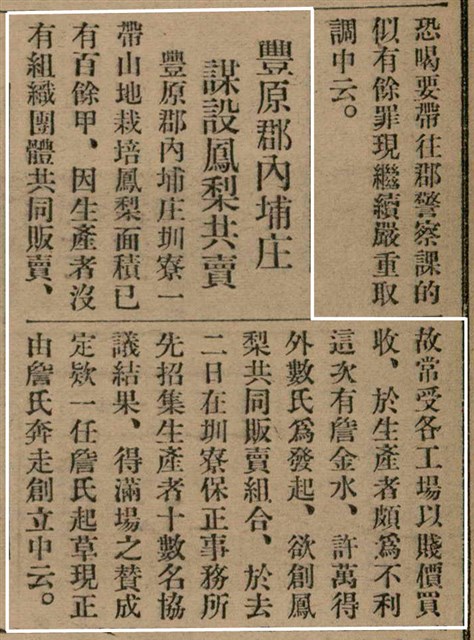 恐喝要帶往郡警察課的
似有餘罪現繼續嚴重取
調中云。
豐原郡內埔庄
謀設鳳梨共賣
豐原郡內埔庄圳寮一
帶山地栽培鳳梨面積已
有百餘甲、因生產者沒
有組織團體共同販賣、
故常受各工場以賤價買
收、於生產者頗爲不利
這次有詹金水、許萬得
外數氏爲發起、欲創鳳
梨共同販賣組合、於去
二日在圳寮保正事務所
先招集生產者十數名協
議結果、得滿場之賛成
定欵一任詹氏起草現正
由詹氏奔走創立中云。